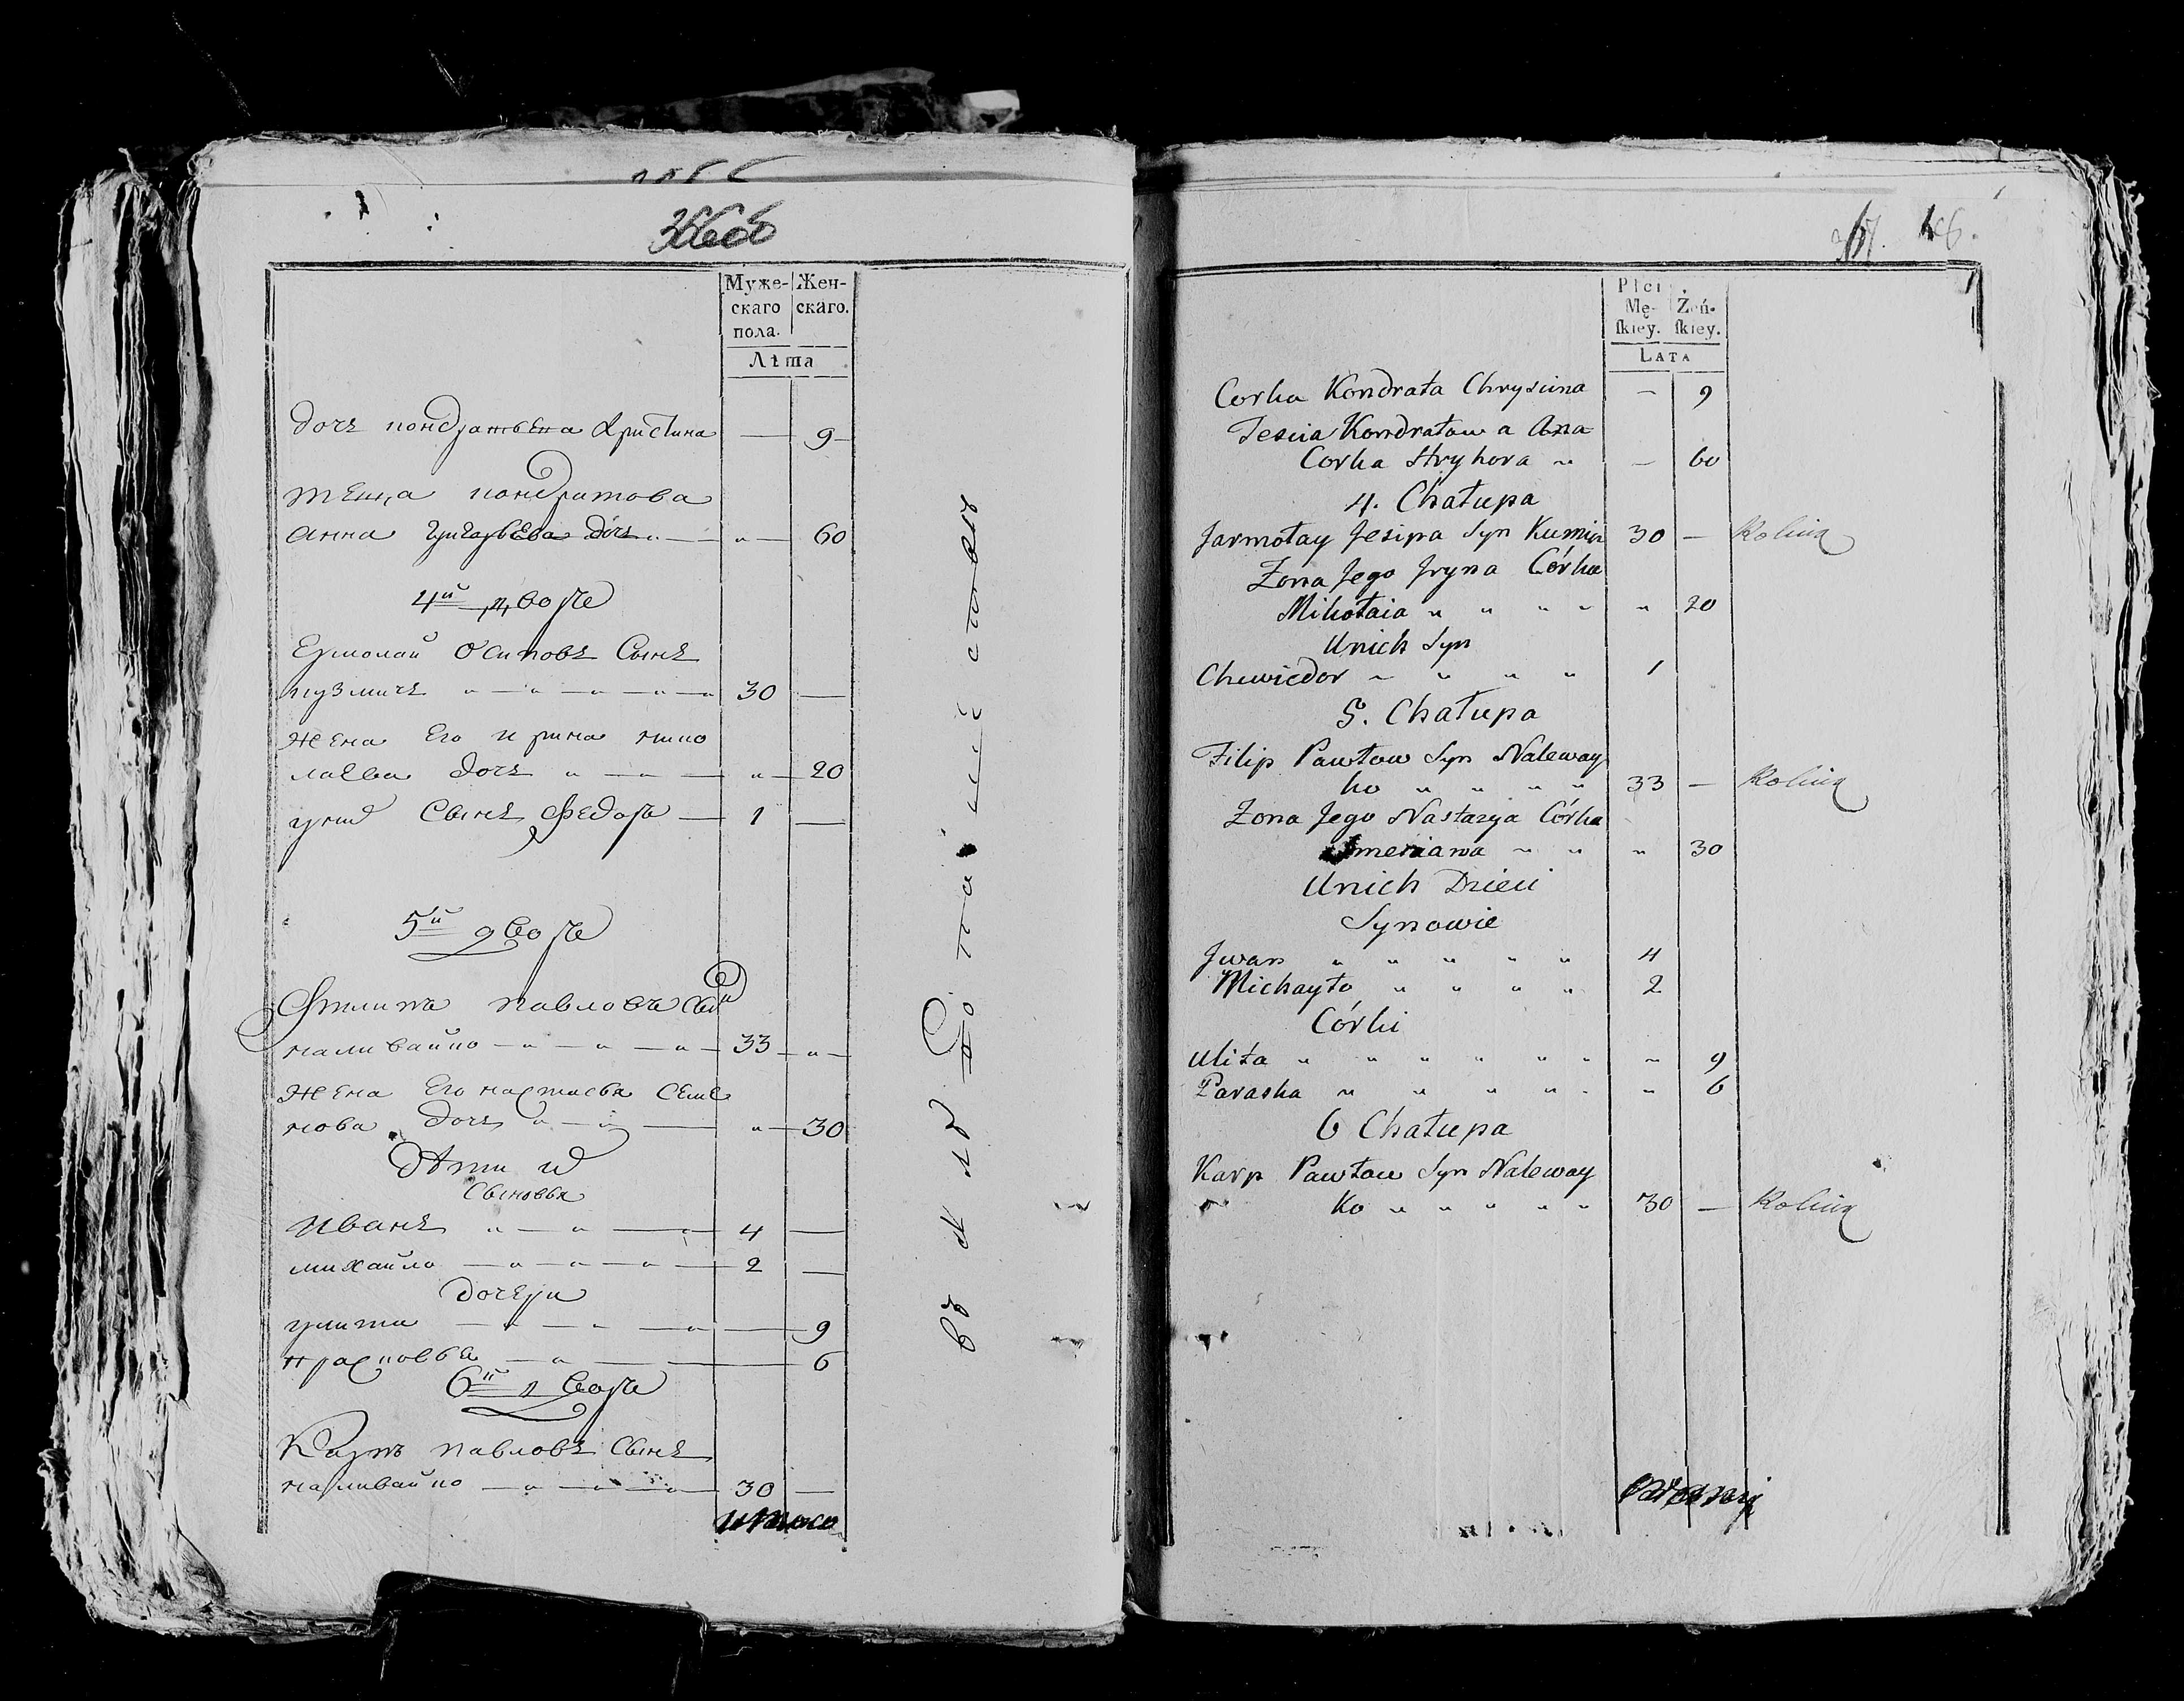 Муже-
скаго
пола.
Жен-
скаго.
Лѣта
дочь кондратьева Христина — 9
теща кондратова
анна григорьева дочь „ — „ — 60
4й дворъ
Ермолай Осиповъ Сынъ
кузмичъ „ — „ — „ — „ — „ 30 —
жена Его ирина нико
лаева дочь „ — „ — „ — 20
у них Сынъ Федоръ — 1 —
5й дворъ
Филипъ павловъ Сын
наливайко — „ — „ — „ — 33 — „ —
жена Его настасья Семе
нова дочь „ — „ — „ — 30
дѣти их
Сыновья
иванъ „ — „ — „ 4 —
михайло — „ — „ — „ — 2 —
дочери
улита — „ — „ — „ — 9
прасковья — „ — — 6
6й дворъ
Карпъ павловъ Сынъ
наливайко — „ — „ — „ 30 —
итого
Płci
Mę-
skiey.
Żeń-
skiey.
Lata
Corka Kondrata Chrystina — 9
Tescia Kondratowa Ana
Corka Hryhora „ — 60
4. Chałupa
Jarmołay Jesipa Syn Kumicz 30 — Rolnik
Zona Jego Jryna Córka
Mikołaia „ „ „ „ „ 20
Unich Syn
Chwiedor „ „ „ „ 1
5. Chałupa
Filip Pawłow Syn Naleway
ko „ „ „ „ 33 — Rolnik
Zona Jego Nastazya Córka
„ „ „ 30
Unich Dzieci
Synowie
Jwan „ „ „ „ „ 4
Michayło „ „ „ „ 2
Córki
Ulita „ „ „ „ „ „ „ 9
Paraska „ „ „ „ „ „ 6
6 Chałupa
Karp Pawłow Syn Naleway
Ko „ „ „ „ „ 30 — Rolnik